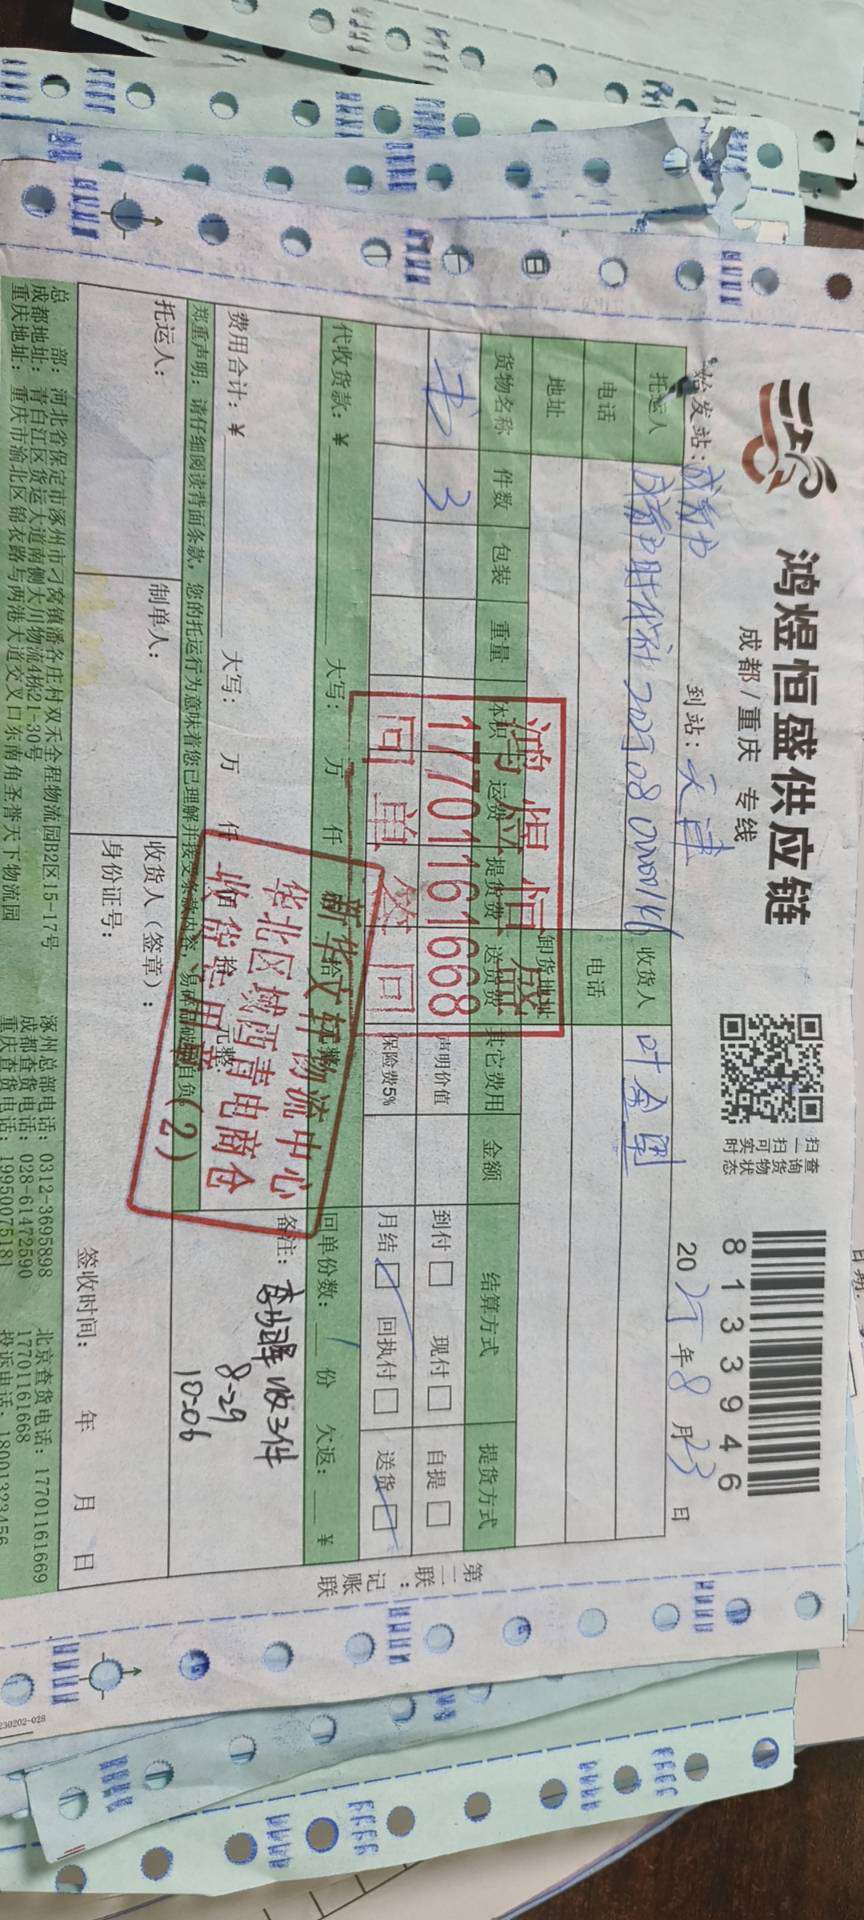 鸿煜恒盛供应链
成都/重庆 专线
扫一扫
查询货物
可实时状态
8133946
始发站：成都 到站：天津 2025年8月23日
托运人 成都时代社 收货人
电话 电话
地址 卸货地址
货物名称 件数 包装 重量 体积 运费 提货费 送货费 其它费用 金额 结算方式 提货方式
书 3 声明价值 到付□ 现付□ 自提□
保险费5% 月结□ 回执付□ 送货□
鸿煜恒盛
17701161668
回单签回
代收货款：￥ 大写： 万 仟 佰 拾 元整 回单份数：1份 欠返： ￥
费用合计：￥ 大写： 万 仟 佰 拾 元整 备注：
收3件
8-29
10:06
新华文轩物流中心
华北区域西青电商仓
收货专用章(2)
郑重声明：请仔细阅读背面条款，您的托运行为意味着您已理解并接受条款内容，易碎品破损自负
托运人： 制单人： 收货人（签章）： 签收时间： 年 月 日
身份证号：
总 部：河北省保定市涿州市刁窝镇潘各庄村双禾全程物流园B2区15-17号 涿州总部电话：0312-3695898 北京查货电话：17701161669
成都地址：青白江区货运大道南侧大川物流4栋21-30号 成都查货电话：028-61472590 17701161668
重庆地址：重庆市渝北区锦衣路与两港大道交叉口东南角圣誉天下物流园 重庆查货电话：19950075181 投诉电话：18001323456
第二联：记账联
230202-028